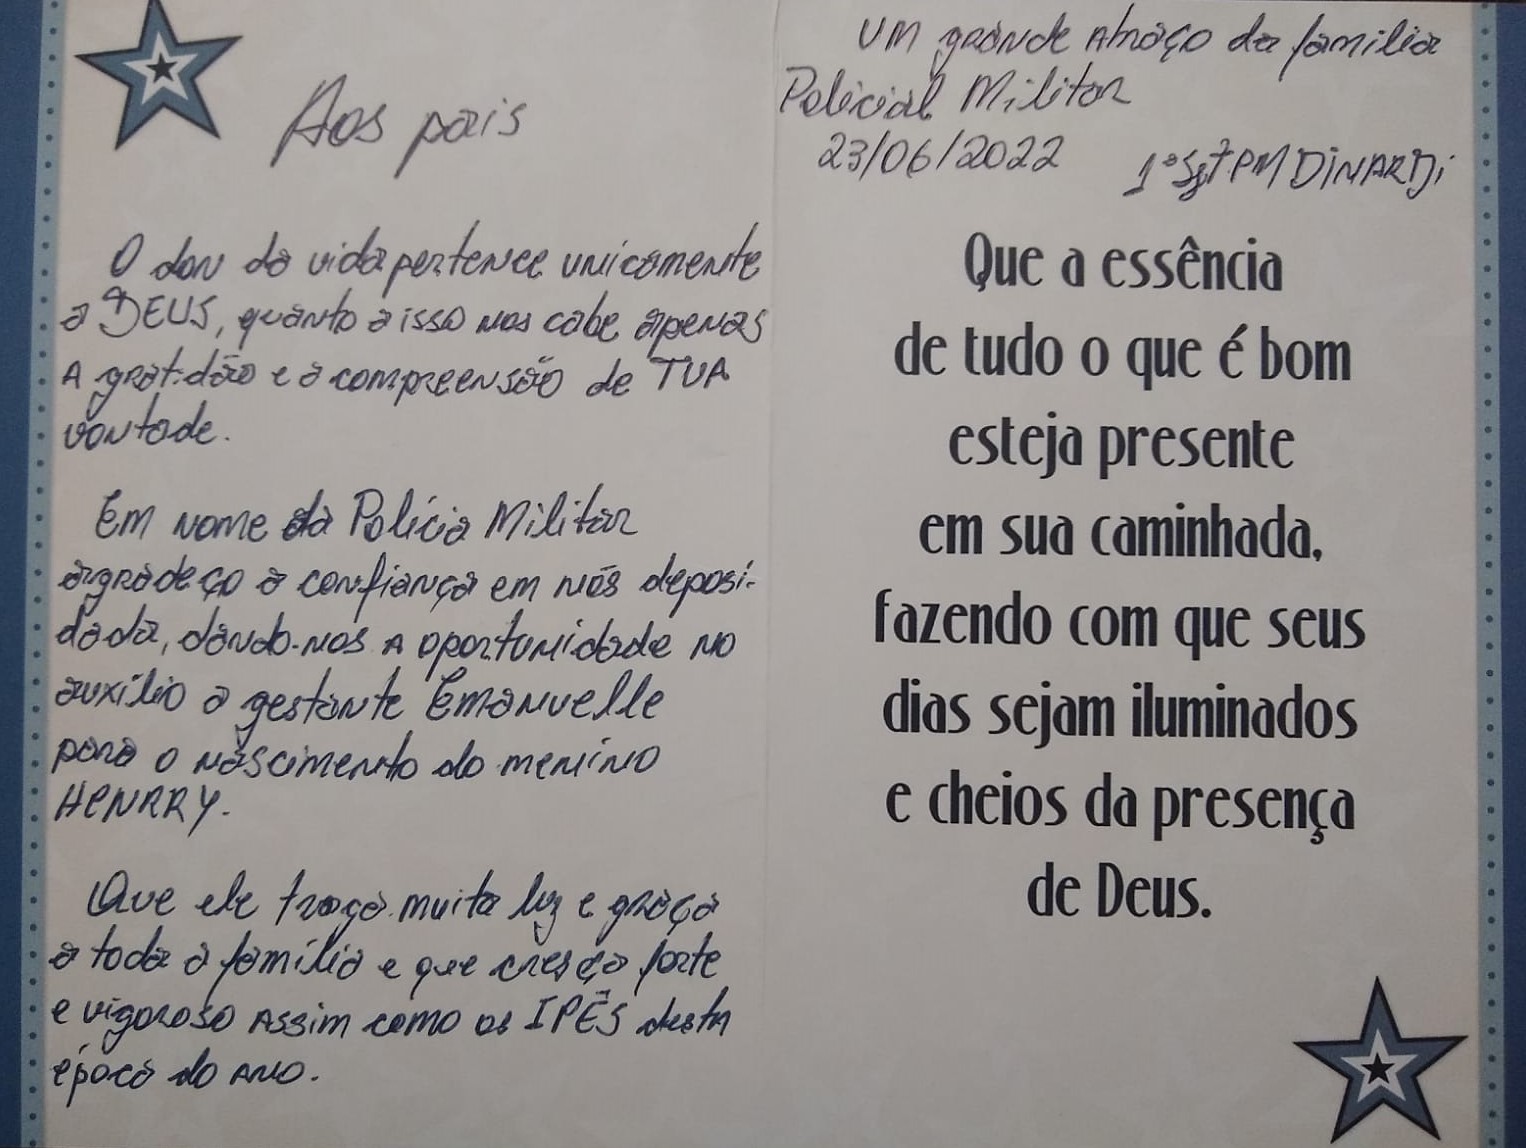 Aos pais
O don da vida pertence unicamente
a DEUS, quanto a isso nos cabe apenas
A gratidão e a compreensão de TUA
vontade.
Em nome da Polícia Militar
agradeço a confiança em nós deposi-
dada, dando-nos A oportunidade no
auxílio a gestante Emanuelle
para o nascimento do menino
HENRRY.
Que ele traga muita luz e graça
a toda a família e que cresça forte
e vigoroso Assim como os IPÊS desta
época do ANO.
UM grande Abraço da família
Policial Militar
23/06/2022 1º Sgt PM DINARDi
Que a essência
de tudo o que é bom
esteja presente
em sua caminhada,
fazendo com que seus
dias sejam iluminados
e cheios da presença
de Deus.